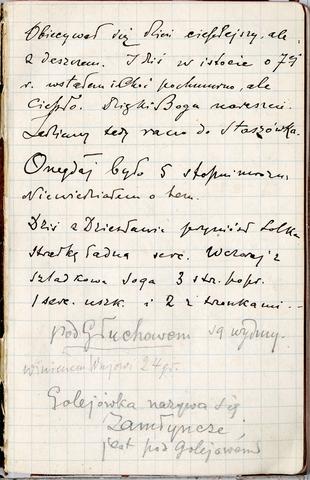 Obiecywał się dzień cieplejszy, ale
z deszczem. I dziś w istocie o 7½
r. wstałem i choć pochmurno, ale
ciepło. Dzięki Boga nareszcie.
Jedziemy tedy rano do Staszówka.
Onegdaj było 5 stopni mrozu
Niewiedziałem o tem.
Dziś z Dziesławic przyniósł Lolka
strzałkę ładną serc. Wczoraj z
1 serc. uszk. i 2 z trzonkami. –
pod Głuchowem są wydmy.
winienem Wujowi 24 gr.
Golejówka nazywa się
Zamłyncze,
jest pod Golejowem